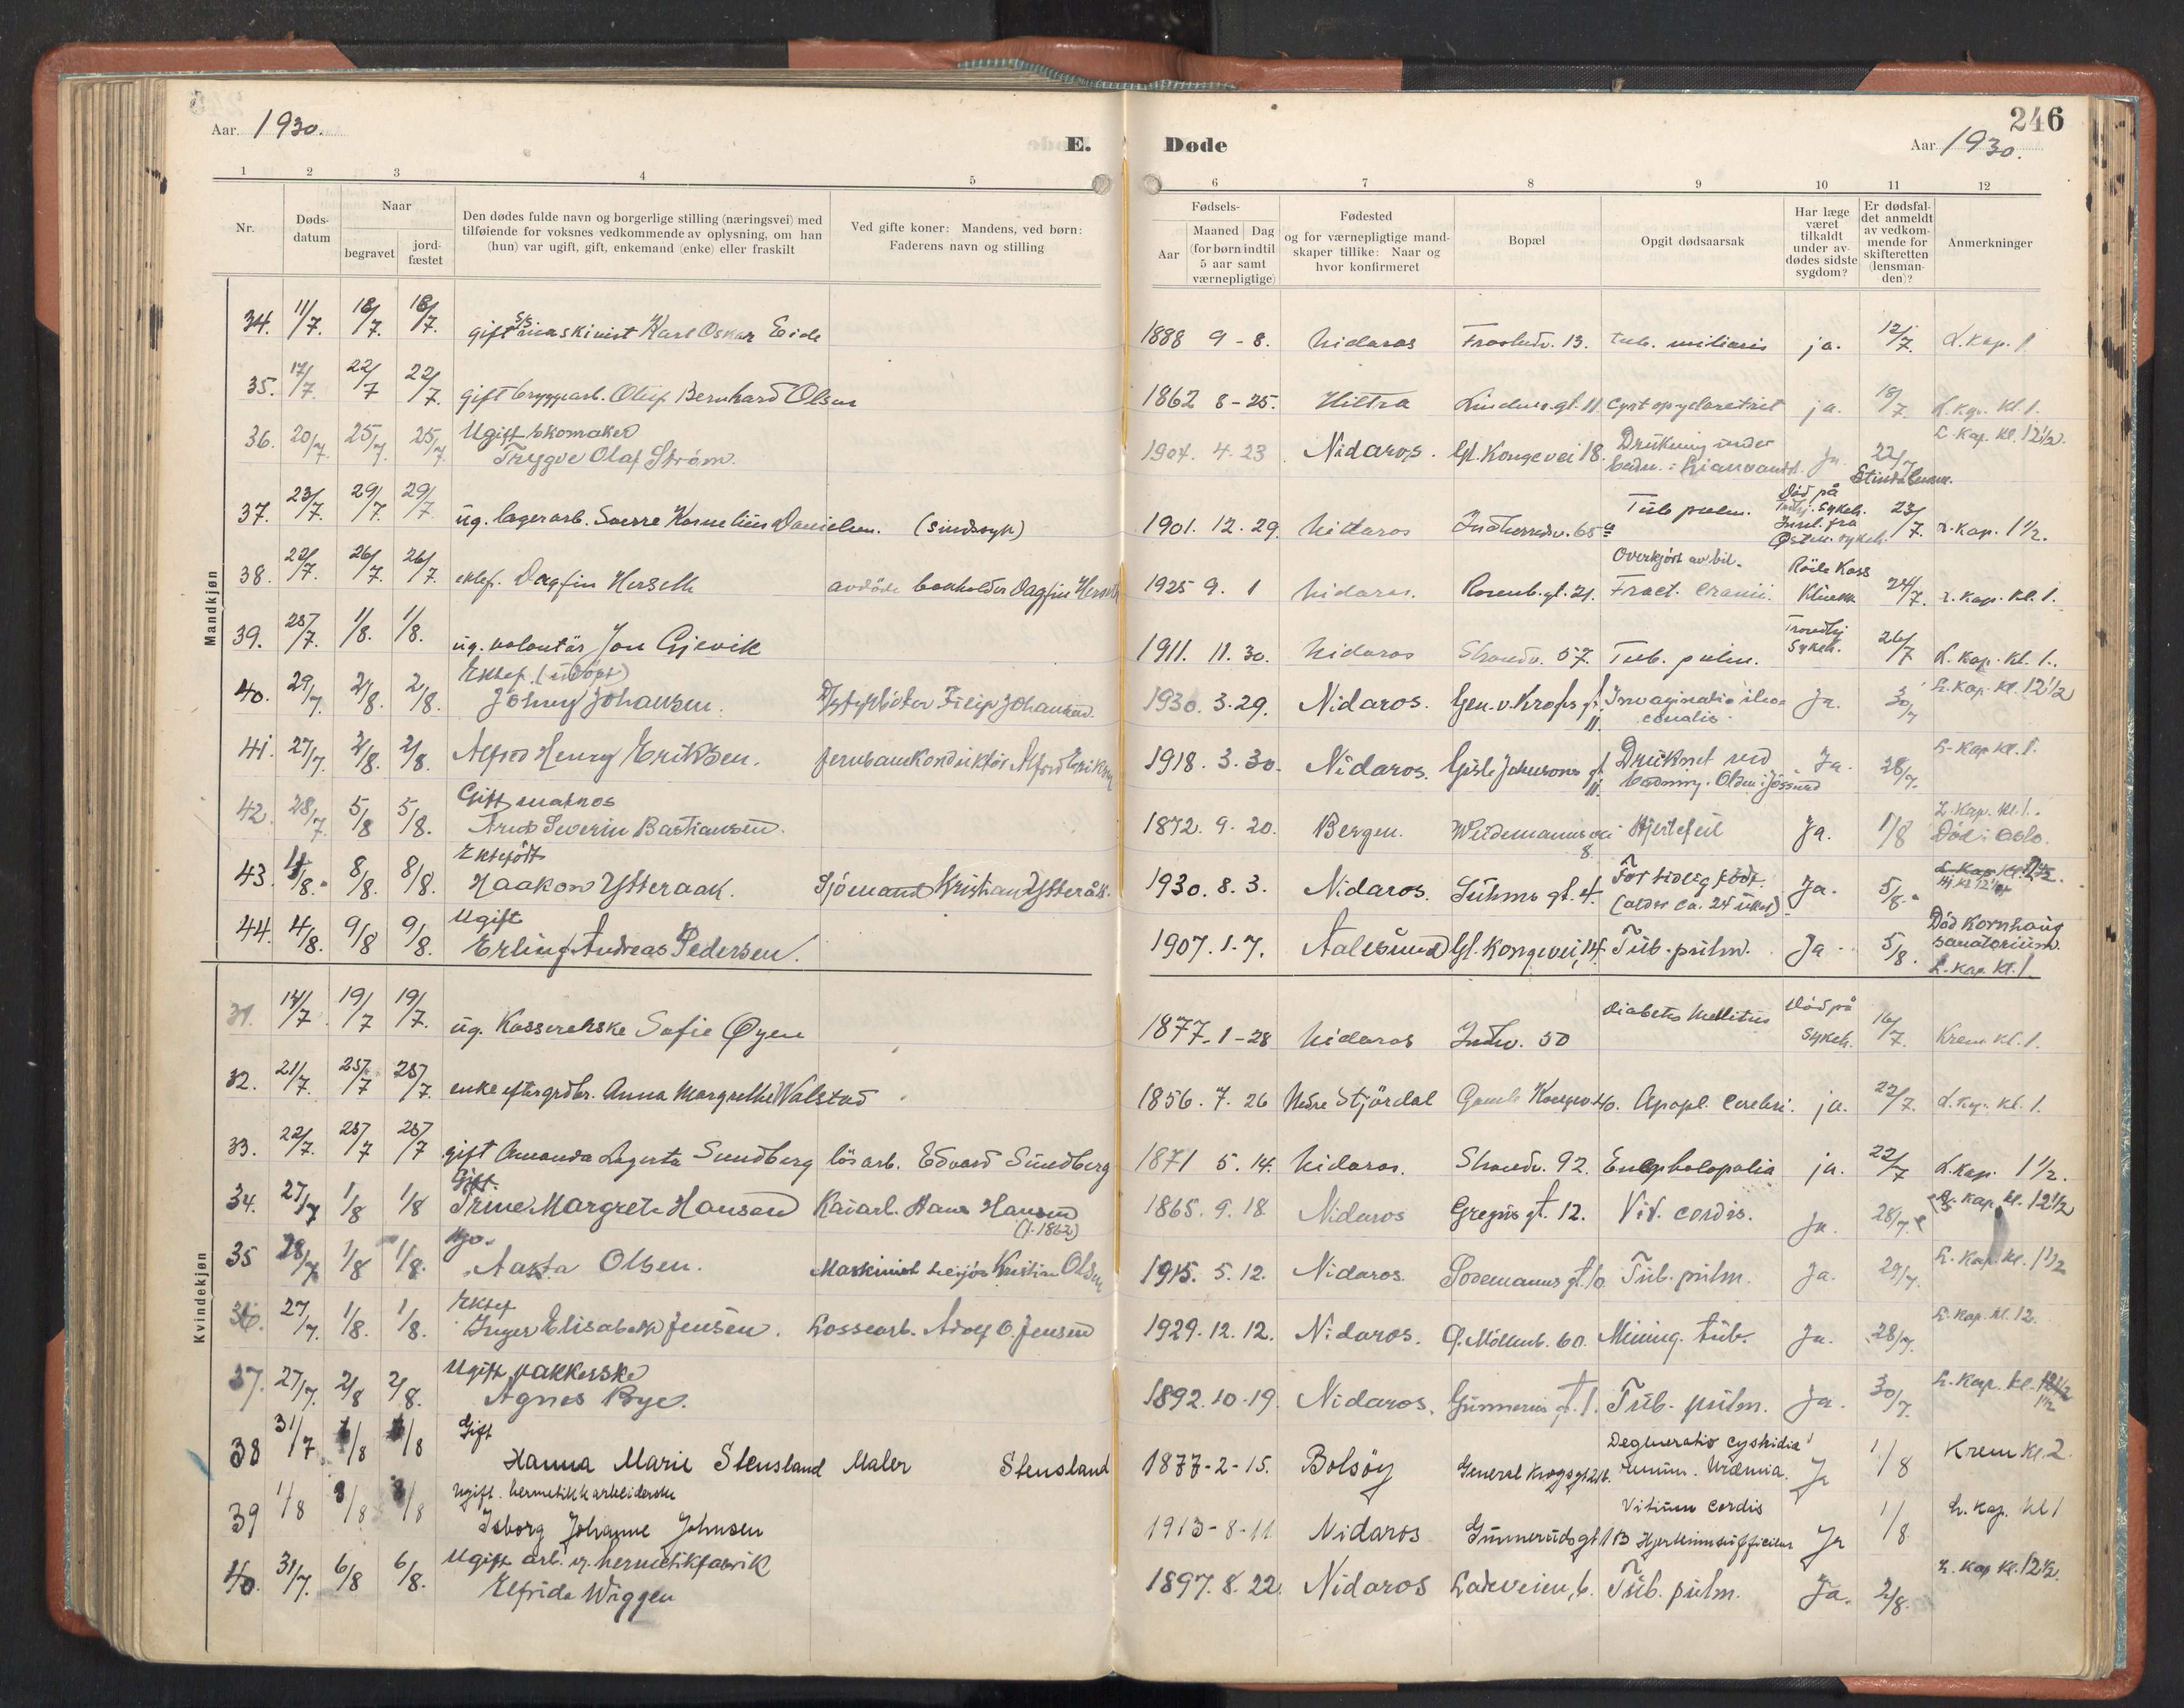 Aar. 1930.
E.
Døde
246
Aar 1930.
1 2 3 4 5
6 7 8 9 10 11 12
Nr.
Døds-datum
Naar
begravet
jord-fæstet
Den dødes fulde navn og borgerlige stilling (næringsvei) med
tilføiende for voksnes vedkommende av oplysning, om han
(hun) var ugift, gift, enkemand (enke) eller fraskilt
Ved gifte koner: Mandens, ved børn:
Faderens navn og stilling
Fødsels-
Aar
Maaned Dag
(for børn indtil
5 aar samt
værnepligtige)
Fødested
og for værnepligtige mand-
skaper tillike: Naar og
hvor konfirmeret
Bopæl
Opgit dødsaarsak
Har læge
været
tilkaldt
under av-
dødes sidste
sygdom?
Er dødsfal-
det anmeldt
av vedkom-
mende for
skifteretten
(lensman-
den)?
Anmerkninger
Mandkjøn
34. 11/7. 18/7. 18/7. gift maskinist Karl Oskar Eide 1888 9-8. Nidaros 13. tub. miliaris ja. 12/7. L. Kap. 1
35. 17/7 22/7 22/7. gift bryggearb. Oluf Bernhard Olsen 1862 8-25. Hitra 11 ja. 18/7 L. Kap. Kl. 1.
36. 20/7. 25/7. 25/7. Ugift skomaker
Trygve Olaf Strøm. 1904. 4. 23 Nidaros. Gl. Kongevei 18. Drukning under
Ja 22/7 L. Kap. Kl. 12½.
37. 23/7. 29/7. 29/7 ug. lagerarb. Sverre Kornelius Danielsen. (sindssyk) 1901. 12. 29. Nidaros Indherredsv. 65 Tub pulm. Død på
23/7. L. Kap. 1½.
38. 22/7. 26/7. 26/7. ektef. Dagfin Herseth avdøde Dagfin Herseth 1925 9. 1 Nidaros. Rosenb.gt. 21. Overkjørt av bil.
Fract. Cranii. Røde Kors
Klinikk 24/7. L. Kap. Kl. 1.
39. 25/7. 1/8. 1/8. ug. volontær Jon Gjevik 1911. 11. 30. Nidaros Strandv. 57. Tub. pulm. Trondhj
Sykeh. 26/7 L. Kap. Kl. 1.
40. 29/7. 2/8. 2/8. Ektef. (udøpt)
Johny Johansen. Filip Johansen. 1930. 3. 29. Nidaros. Gen. v. Kroghs gt. 11. Invaginatio Ja. 30/7 L. Kap. Kl. 12½
41. 27/7. 2/8. 2/8. Alfred Henry Eriksen. Jernbanekonduktør Alfred Eriksen 1918. 3. 30. Nidaros. Gisle Johnsons gt. 11. Druknet ved
badning. Ja. 28/7. L. Kap Kl. 1.
42. 28/7. 5/8 5/8. Gift matros
Severin Bastiansen. 1872. 9. 20. Bergen. Weidemannsvei 8. Hjertefeil Ja. 1/8 L. Kap. Kl. 1.
Død i Oslo.
43. 4/8. 8/8. 8/8. Ektefødt
Haakon Ytteraak. Sjømand Kristian Ytteråk. 1930. 8. 3. Nidaros. Suhms gt. 4. For tidlig født.
(alder ca. 24 uker) Ja. 5/8.
44. 4/8. 9/8 9/8. Ugift
Erling Andreas Pedersen. 1907. 1. 7. Aalesund Gl. Kongevei, 14. Tub. pulm. Ja. 5/8. Død Kornhaug
sanatorium.
L. Kap. Kl. 1.
Kvindekjøn
31. 14/7. 19/7 19/7. ug. Kassererske Sofie Øyen 1877. 1-28 Nidaros Indhv. 50 Diabetes Mellitus Død på
Sykeh. 16/7. Krem Kl. 1.
32. 21/7. 25/7 25/7. enke efter grdbr. Anna Margrethe Valstad 1856. 7. 26 Nedre Stjørdal Gamle Kongev. 40. Apopl. Cerebri. ja. 22/7. L. Kap. Kl. 1.
33. 22/7. 25/7 25/7 gift Amanda Lagerta Sundberg løsarb. Edvard Sundberg 1871 5. 14. Nidaros. Strandv. 92. ja. 22/7 L. Kap. 1½.
34. 27/7 1/8 1/8 Gift.
Trine Margrete Hansen Kaiarb. Hans Hansen
(f. 1862) 1865. 9. 18 Nidaros Gregus gt. 12. Vit. cordis. Ja. 28/7. L. Kap. Kl. 12½
35 28/7 1/8 1/8.
Aasta Olsen. Maskinist Kristian Olsen 1915. 5. 12. Nidaros. Sodemanns gt. 10 Tub. pulm. Ja. 29/7. L. Kap. Kl. 1½
36. 27/7. 1/8. 1/8. Ektef
Inger Elisabeth Jensen. Lossearb. Adolf O. Jensen 1929. 12. 12. Nidaros. Ø. Møllenb. 60. Mening. tub. Ja. 28/7. L. Kap. Kl. 12.
37. 27/7. 2/8 2/8. Ugift pakkerske
Agnes Bye. 1892. 10. 19. Nidaros. Gunnerus gt. 1. Tub. pulm. Ja. 30/7. L. Kap. Kl. 12½
1½
38 31/7 /8 /8 Gift
Hanna Marie Stensland Maler Stensland 1877-2-15. Bolsøy General Krogsgt 21b. Degeneratio cystidia
renum. Urämia. Ja 1/8 Krem Kl. 2.
39 1/8 8/8 8/8 Ugift. hermetikkarbeiderske
Isborg Johanne Johnsen 1913-8-11 Nidaros Gunnerusgt 1B Vitium cordis
Hjerteinsufficiens Ja 1/8 L. Kap. Kl 1
40. 31/7. 6/8 6/8. Ugift arb. v. hermetikfabrik
Elfrida Wiggen 1897. 8. 22. Nidaros Ladeveien, 6. Tub. pulm. Ja. 2/8. L. Kap Kl. 12½.